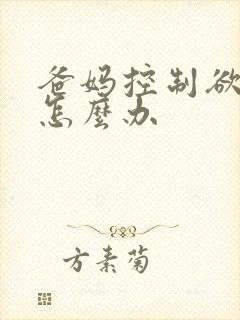 爸妈控制欲
怎麼办
方素菊